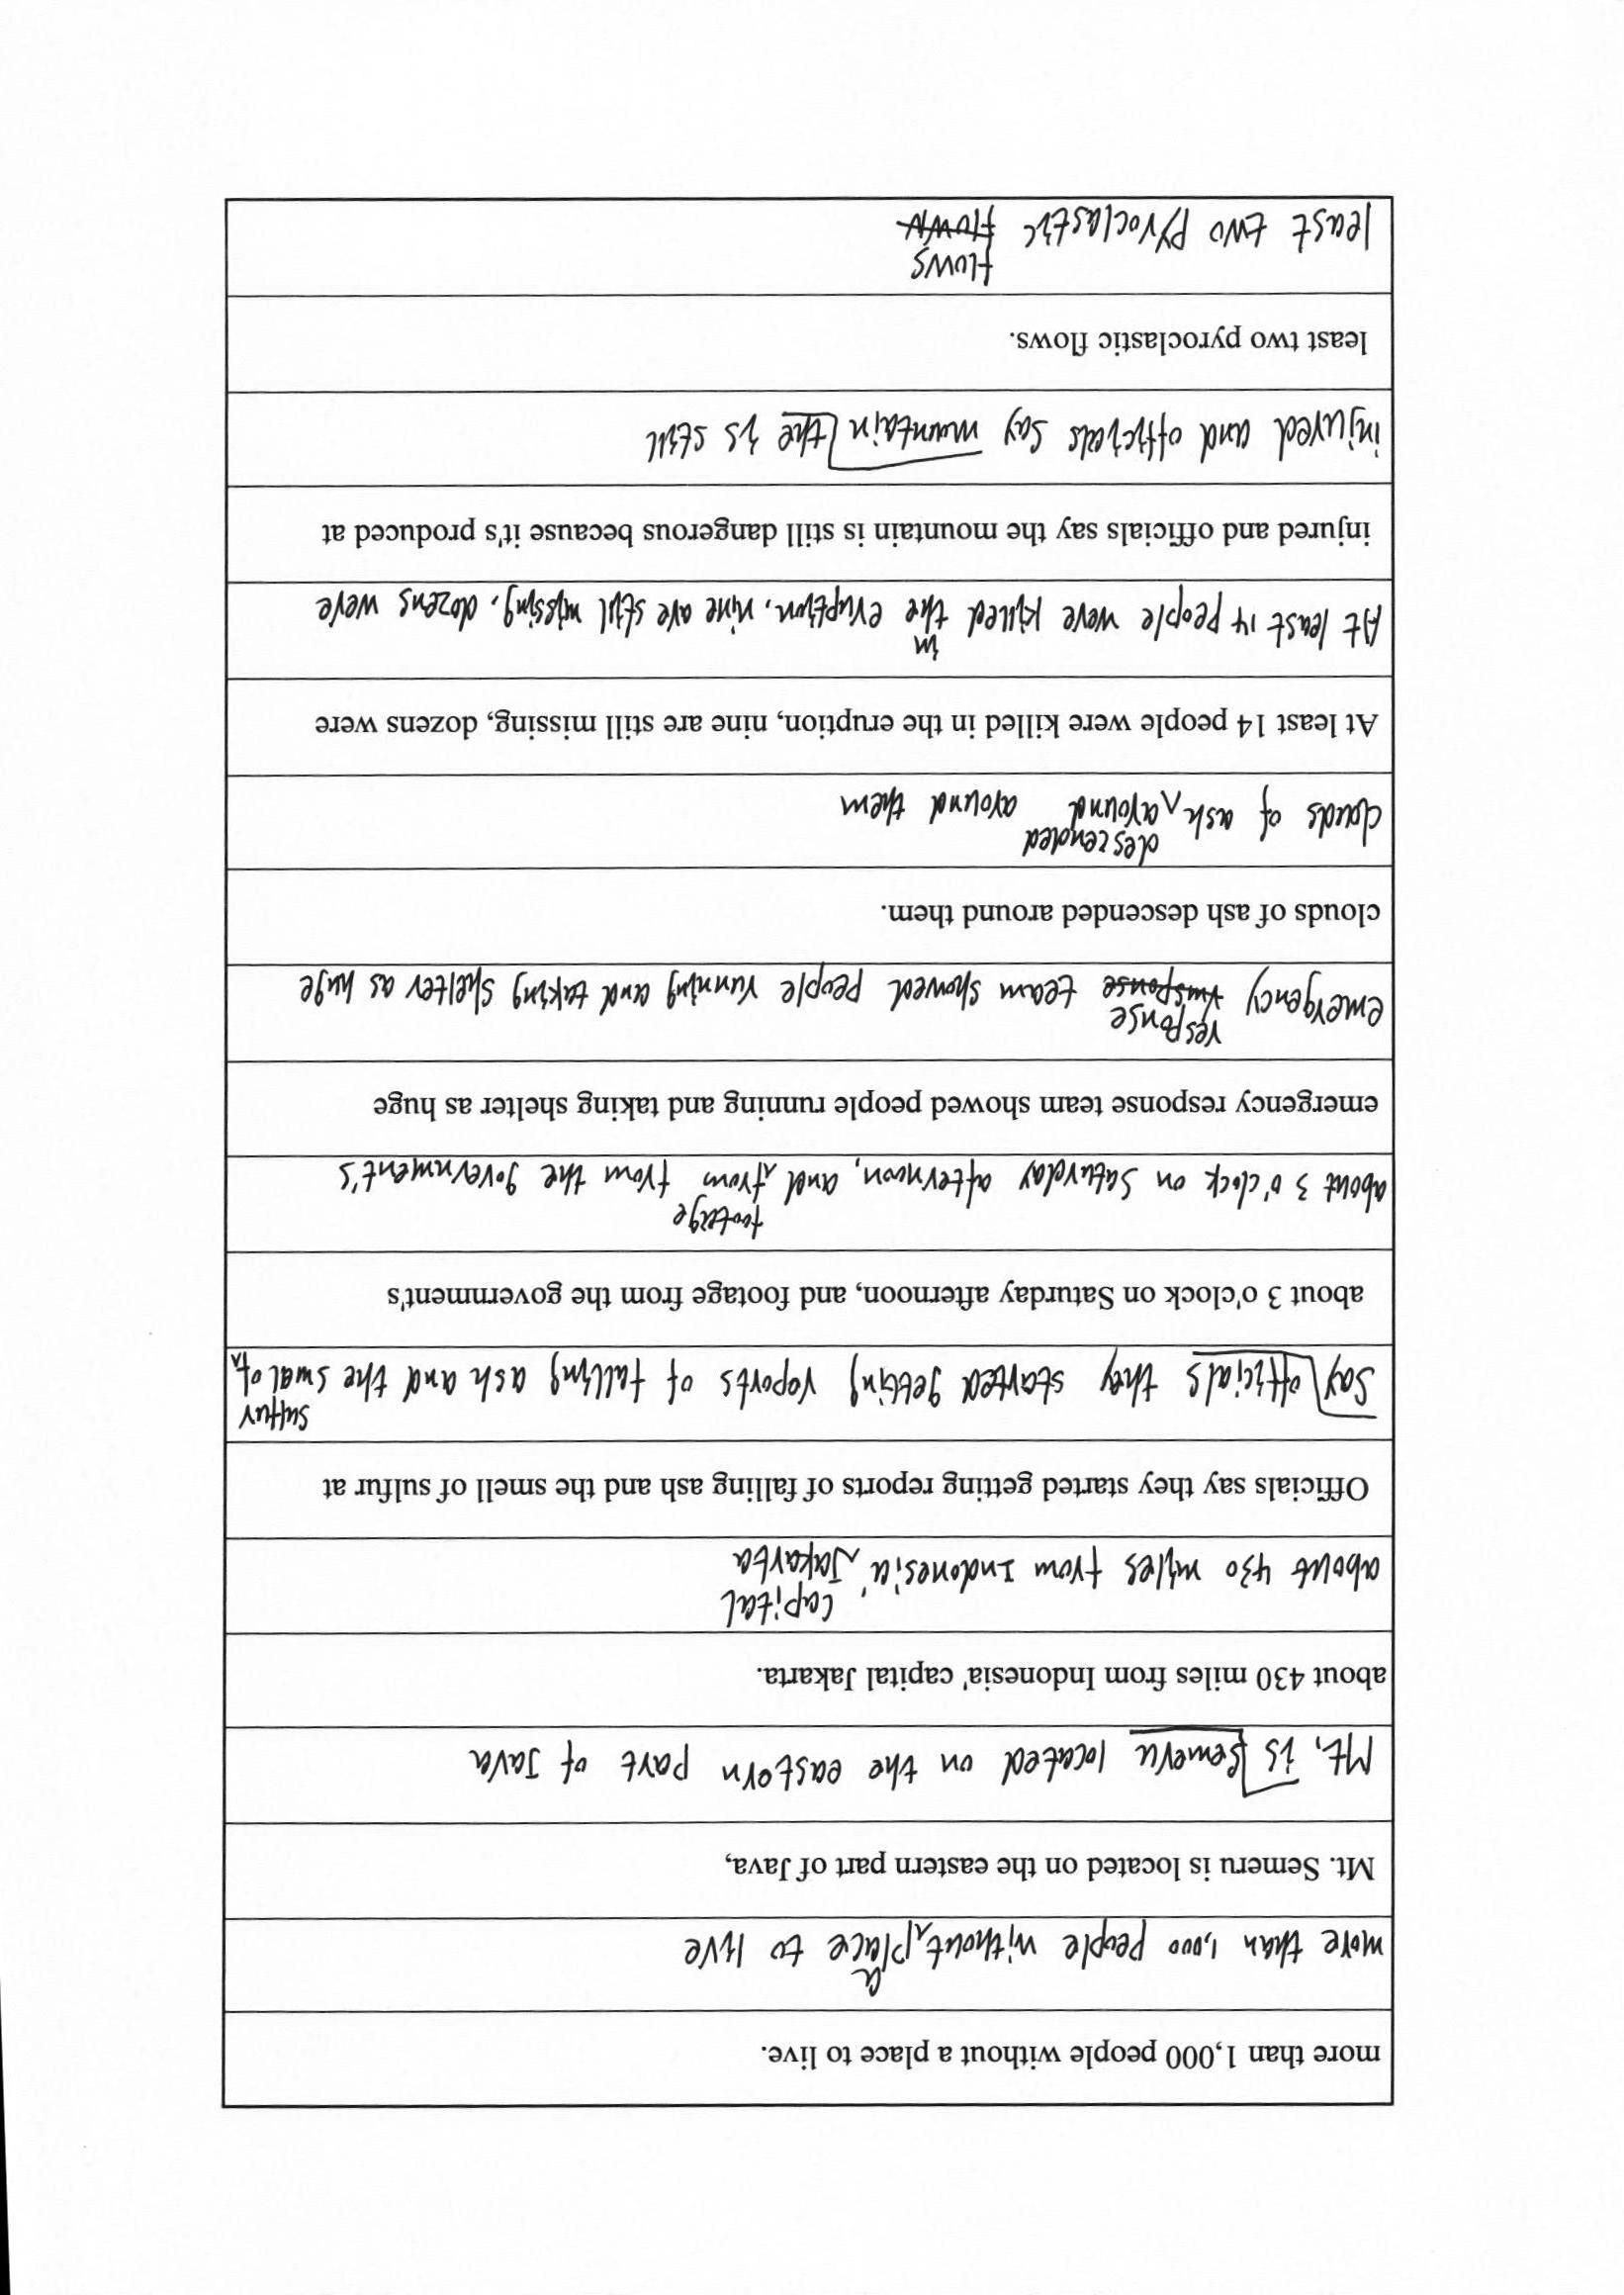 more than 1,000 people without a place to live.
a
more than 1,000 people without place to live
Mt. Semeru is located on the eastern part of Java,
Mt. is Semeru located on the eastorn part of Java
about 430 miles from Indonesia' capital Jakarta.
capital
about 430 miles from Indonesia' Jakarta
Officials say they started getting reports of falling ash and the smell of sulfur at
sulfur
Say officials they started getting roports of falling ash and the smal of
about 3 o'clock on Saturday afternoon, and footage from the government's
footage
about 3 o'clock on Saturday afternoon, and from from the government's
emergency response team showed people running and taking shelter as huge
response
emergency rusponse team showed people running and taking shelter as huge
clouds of ash descended around them.
descended
clouds of ash around around them
At least 14 people were killed in the eruption, nine are still missing, dozens were
in
At least 14 people were killed the eruption, nine are still missing, dozens were
injured and officials say the mountain is still dangerous because it's produced at
injured and officials say mountain the is still
least two pyroclastic flows.
flows
least two pyroclastic flown